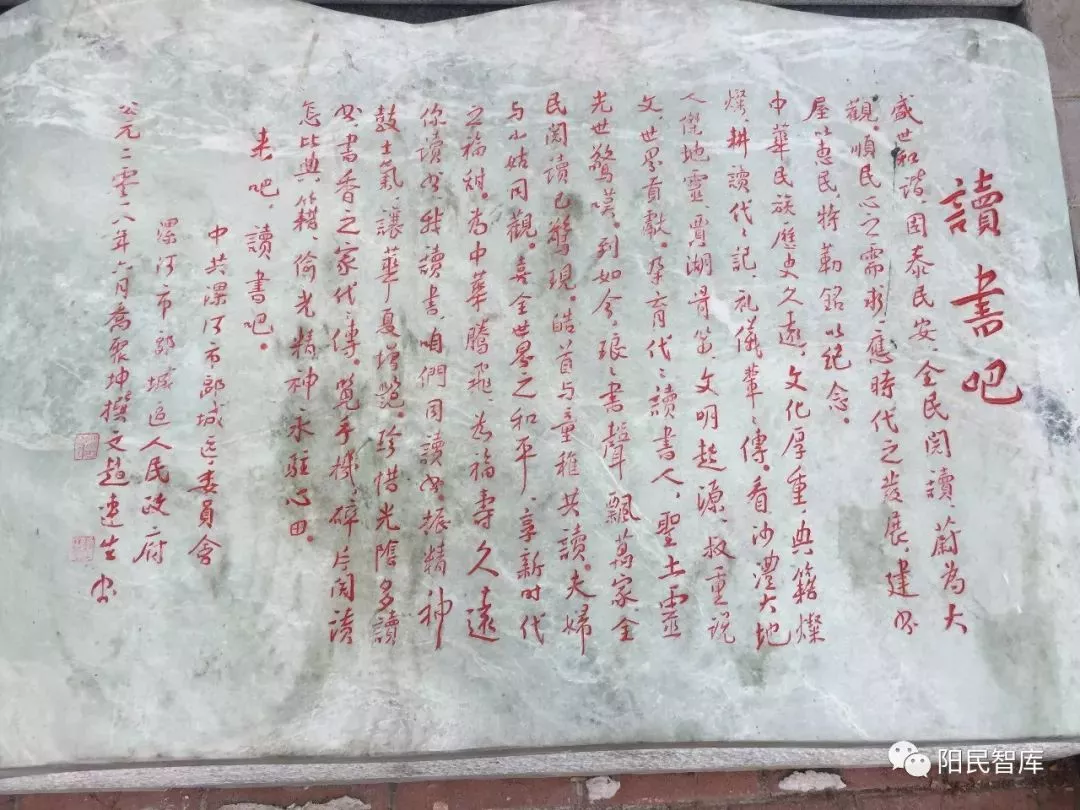 讀書吧
盛世和谐,国泰民安,全民阅讀,蔚为大
觀。順民心之需求,應時代之發展,建书
屋以惠民,特勒銘以纪念。
中華民族歷史久遠,文化厚重,典籍燦
燦,耕讀代〻記,礼儀輩〻傳。看沙澧大地
人傑地靈,賈湖骨笛,文明起源,叔重说
文,世界貢獻。孕育代〻讀書人,聖土靈
光世驚嘆。到如今,琅〻書聲飄萬家,全
民阅讀已驚現。皓首与童稚共讀。夫婦
与小姑同觀。喜全世界之和平,享新时代
之福甜。为中華騰飛,为福壽久遠
你讀书,我讀書,咱們同讀书。振精神
鼓士氣,讓華夏增艷。珍惜光陰多讀
书,書香之家代〻傳。覽手機,碎片阅读
怎比典籍、偷光精神永駐心田。
来吧,讀書吧。
中共漯河市郾城区委員會
漯河市郾城区人民政府
公元二零一八年六月喬聚坤撰文趙连生书
阳民智库